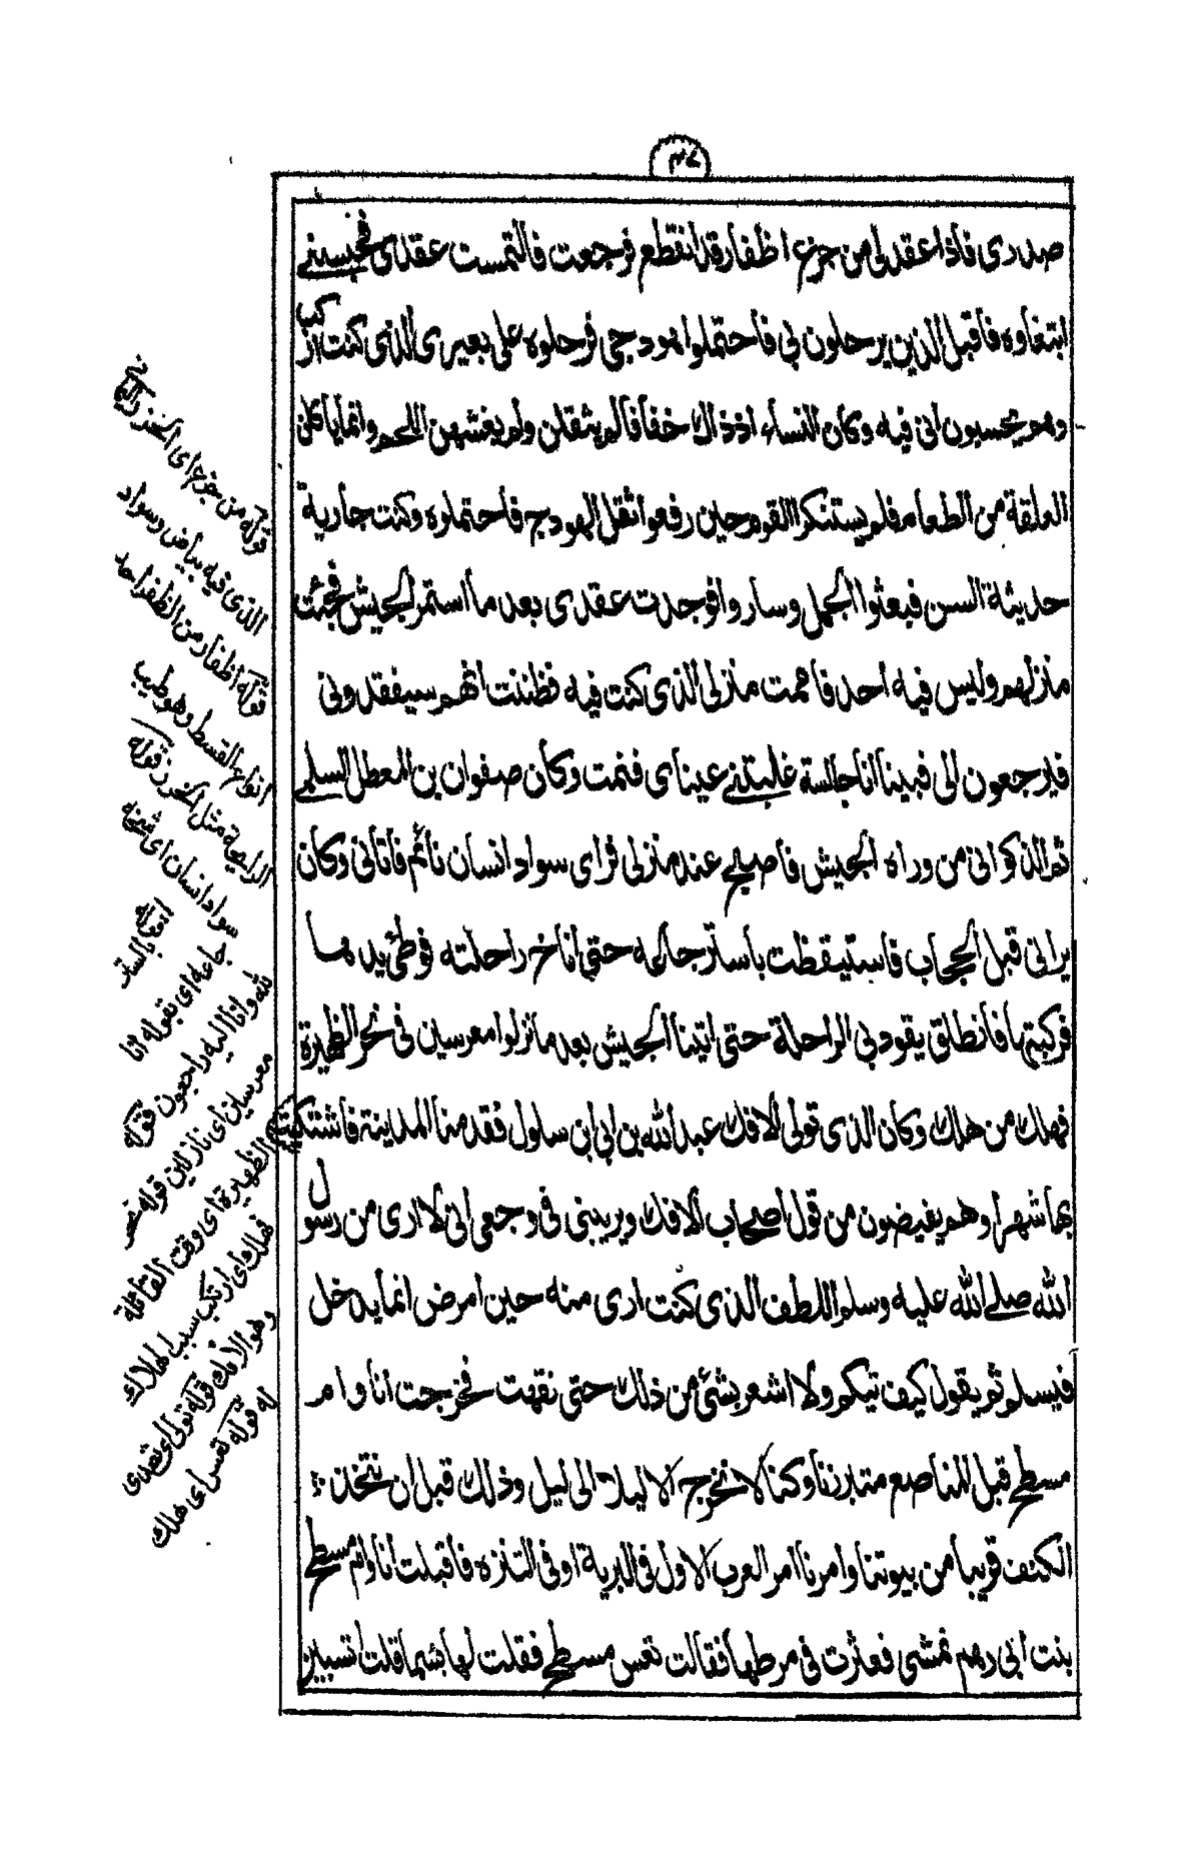 ٣٧
صدرى فاذا عقد لى من جزع اظفار قد انقطع فرجعت فالتمست عقدى فحبسنى
ابتغاوه فاقبل الذين يرحلون بى فاحتملوا هودجى فرحلوه على بعيرى الذى كنت اركب
وهم يحسبون انى فيه وكان النساء اذ ذاك خفافا لم يثقلن ولم يغشهن اللحم وانما ياكلن
العلقة من الطعام فلم يستنكر القوم حين رفعوا ثقل الهودج فاحتملوه وكنت جارية
حديثة السن فبعثوا الجمل وساروا فوجدت عقدى بعد ما استمر الجيش فجئت
منزلهم وليس فيه احد فاممت منزلى الذى كنت فيه فظننت انهم سيفقدونى
فيرجعون الى فبينا انا جالسة غلبتنى عيناى فنمت وكان صفوان بن المعطل السلمى
ثم الذكوانى من وراء الجيش فاصبح عند منزلى فراى سواد انسان نائم فاتانى وكان
يرانى قبل الحجاب فاستيقظت باسترجاعه حتى اناخ راحلته فوطئ يدها
فركبتها فانطلق يقود بى الراحلة حتى اتينا الجيش بعد ما نزلوا معرسين فى نحر الظهيرة
فهلك من هلك وكان الذى تولى الافك عبد الله بن ابى ابن سلول فقدمنا المدينة فاشتكيت
بها شهرا وهم يفيضون من قول اصحاب الافك ويريبنى فى وجعى انى لا ارى من رسول
الله صلى الله عليه وسلم اللطف الذى كنت ارى منه حين امرض انما يدخل
فيسلم ثم يقول كيف تيكم ولا اشعر بشئ من ذلك حتى نقهت فخرجت انا وام
مسطح قبل المناصع متبرزنا وكنا لا نخرج الا ليلا الى ليل وذلك قبل ان نتخذ
الكنف قريبا من بيوتنا وامرنا امر العرب الاول فى البرية او فى التنزه فاقبلت انا وام مسطح
بنت ابى رهم نمشى فعثرت فى مرطها فقالت تعس مسطح فقلت لها بئسما قلت اتسبين
قوله من جزع اى الخرز اليمانى
الذى فيه بياض وسواد
قوله اظفار من الظفر احد
انواع القسط وهو طيب
الرايحة مثل الخرز قوله
سواد انسان اى شخصه
جاعه اى بقوله انا
لله وانا اليه راجعون قوله
معرسين اى نازلين قوله نحر
الظهيرة اى وقت القائلة
فهلك اى ارتكب سبب الهلاك
وهو الافك قوله تولى اى تصدى
له قوله تعس اى هلك